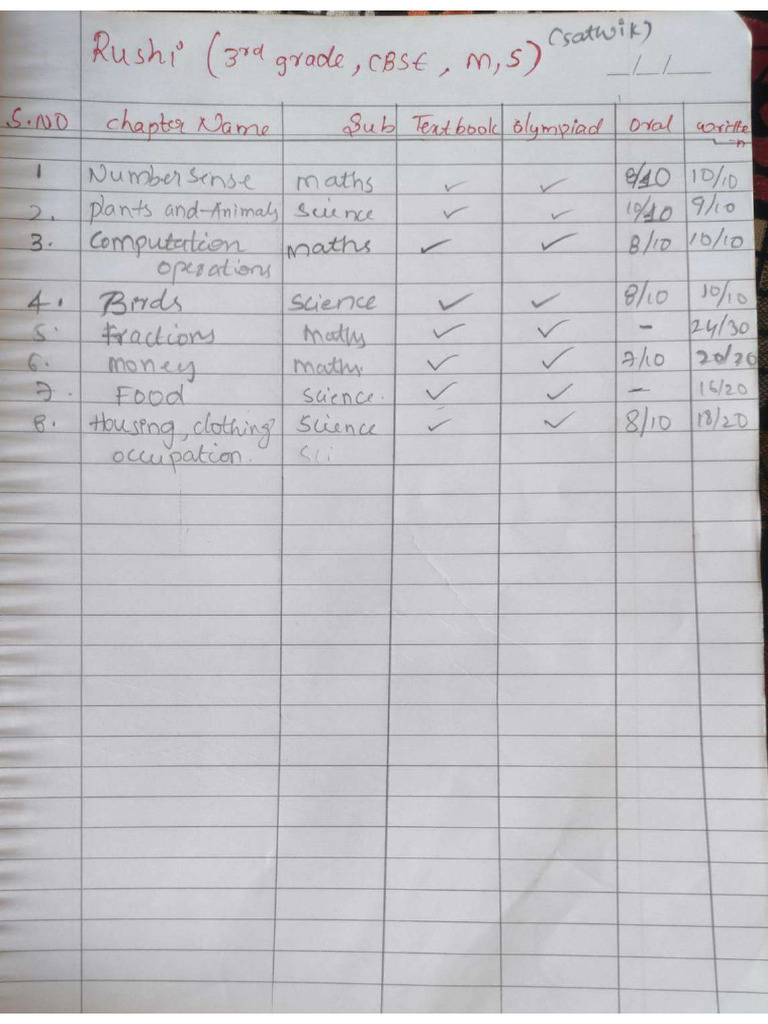 Rushi (3rd grade, CBSE, M, S) (satwik)
__/__/__
S.NO Chapter Name Sub Textbook Olympiad Oral written
1 Number sense maths ✓ ✓ /10 10/10
2. plants and Animals science ✓ ✓ 10/10 9/10
3. Computation maths ✓ ✓ 8/10 10/10
operations
4. Birds science ✓ ✓ 8/10 10/10
5. fractions maths ✓ ✓ - 24/30
6. money maths. ✓ ✓ 7/10 20/20
7. FOOD science. ✓ ✓ - /20
8. Housing, clothing science ✓ ✓ 8/10 18/20
occupation. Sci